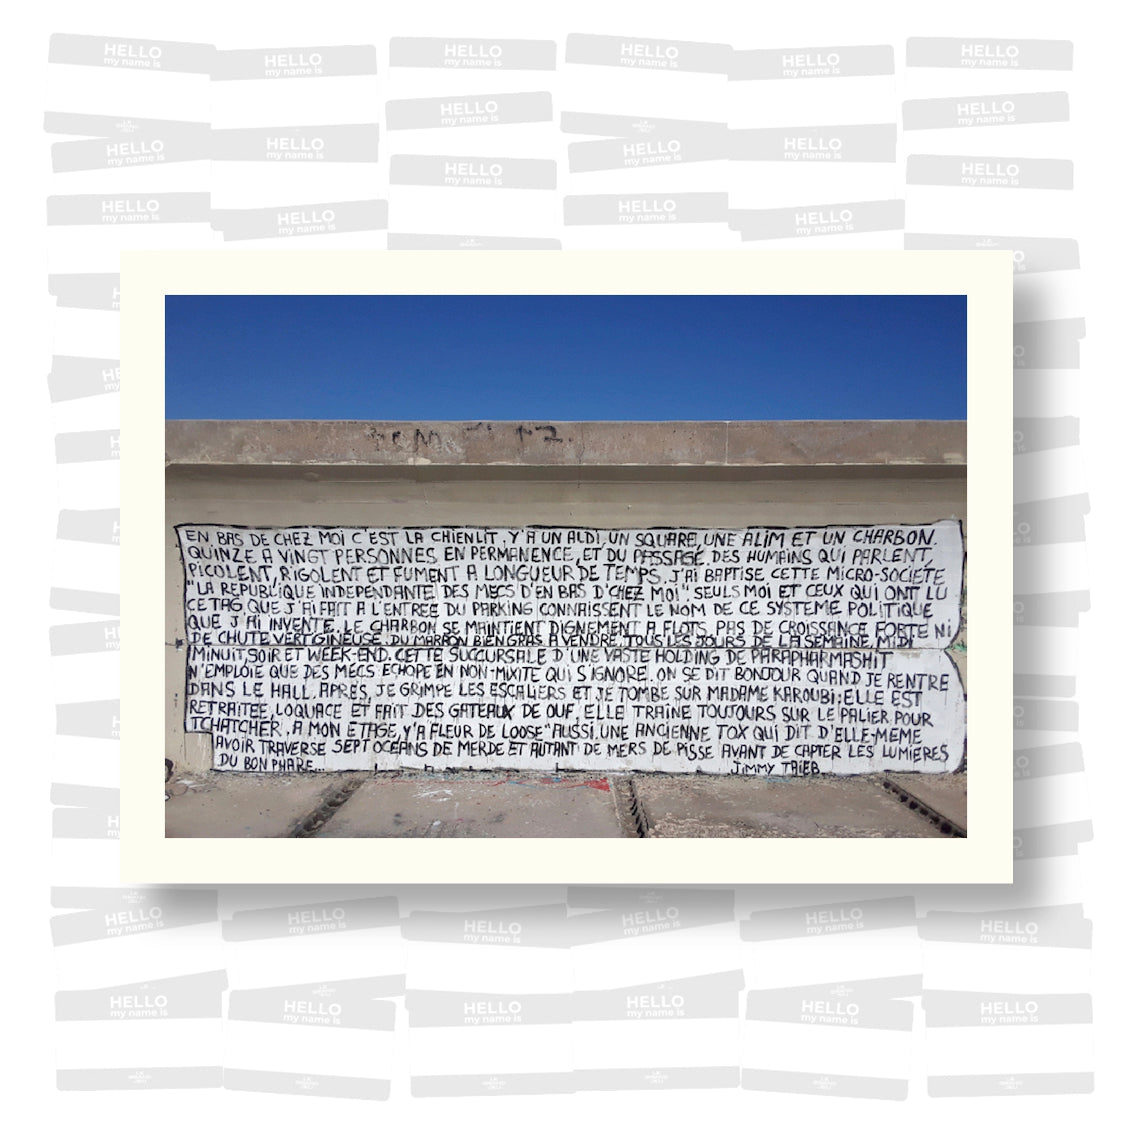 HELLO my name is
EN BAS DE CHEZ MOI C'EST LA CHIENLIT, Y'A UN ALDI, UN SQUARE, UNE ALIM ET UN CHARBON.
QUINZE A VINGT PERSONNES EN PERMANENCE, ET DU PASSAGE. DES HUMAINS QUI PARLENT,
PICOLENT, RIGOLENT ET FUMENT A LONGUEUR DE TEMPS. J'AI BAPTISE CETTE MICRO-SOCIETE
"LA REPUBLIQUE INDEPENDANTE DES MECS D'EN BAS D'CHEZ MOI". SEULS MOI ET CEUX QUI ONT LU
CE TAG QUE J'AI FAIT A L'ENTREE DU PARKING CONNAISSENT LE NOM DE CE SYSTEME POLITIQUE
QUE J'AI INVENTE. LE CHARBON SE MAINTIENT DIGNEMENT A FLOTS. PAS DE CROISSANCE FORTE NI
DE CHUTE VERTIGINEUSE. DU MARRON BIEN GRAS A VENDRE, TOUS LES JOURS DE LA SEMAINE, MIDI
MINUIT, SOIR ET WEEK-END. CETTE SUCCURSALE D'UNE VASTE HOLDING DE PARAPHARMASHIT
N'EMPLOIE QUE DES MECS, ECHOPE EN NON-MIXITE QUI S'IGNORE. ON SE DIT BONJOUR QUAND JE RENTRE
DANS LE HALL. APRES, JE GRIMPE LES ESCALIERS ET JE TOMBE SUR MADAME KAROUBI; ELLE EST
RETRAITEE, LOQUACE ET FAIT DES GATEAUX DE OUF. ELLE TRAINE TOUJOURS SUR LE PALIER POUR
TCHATCHER. A MON ETAGE, Y'A FLEUR DE LOOSE" AUSSI. UNE ANCIENNE TOX QUI DIT D'ELLE-MEME
AVOIR TRAVERSE SEPT OCEANS DE MERDE ET AUTANT DE MERS DE PISSE AVANT DE CAPTER LES LUMIERES
DU BON PHARE...
JIMMY TAIEB